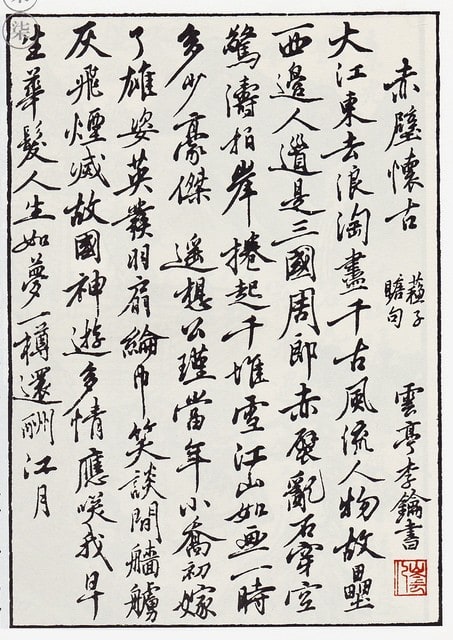 柒
赤壁懷古 蘇子瞻句 雲亭李鑰書
大江東去浪淘盡千古風流人物故壘
西邊人道是三國周郎赤壁亂石穿空
驚濤拍岸捲起千堆雪江山如画一時
多少豪傑 遙想公瑾當年小喬初嫁
了雄姿英發羽扇綸巾笑談間艢艣
灰飛煙滅故國神遊多情應笑我早
生華髮人生如夢一樽還酹江月